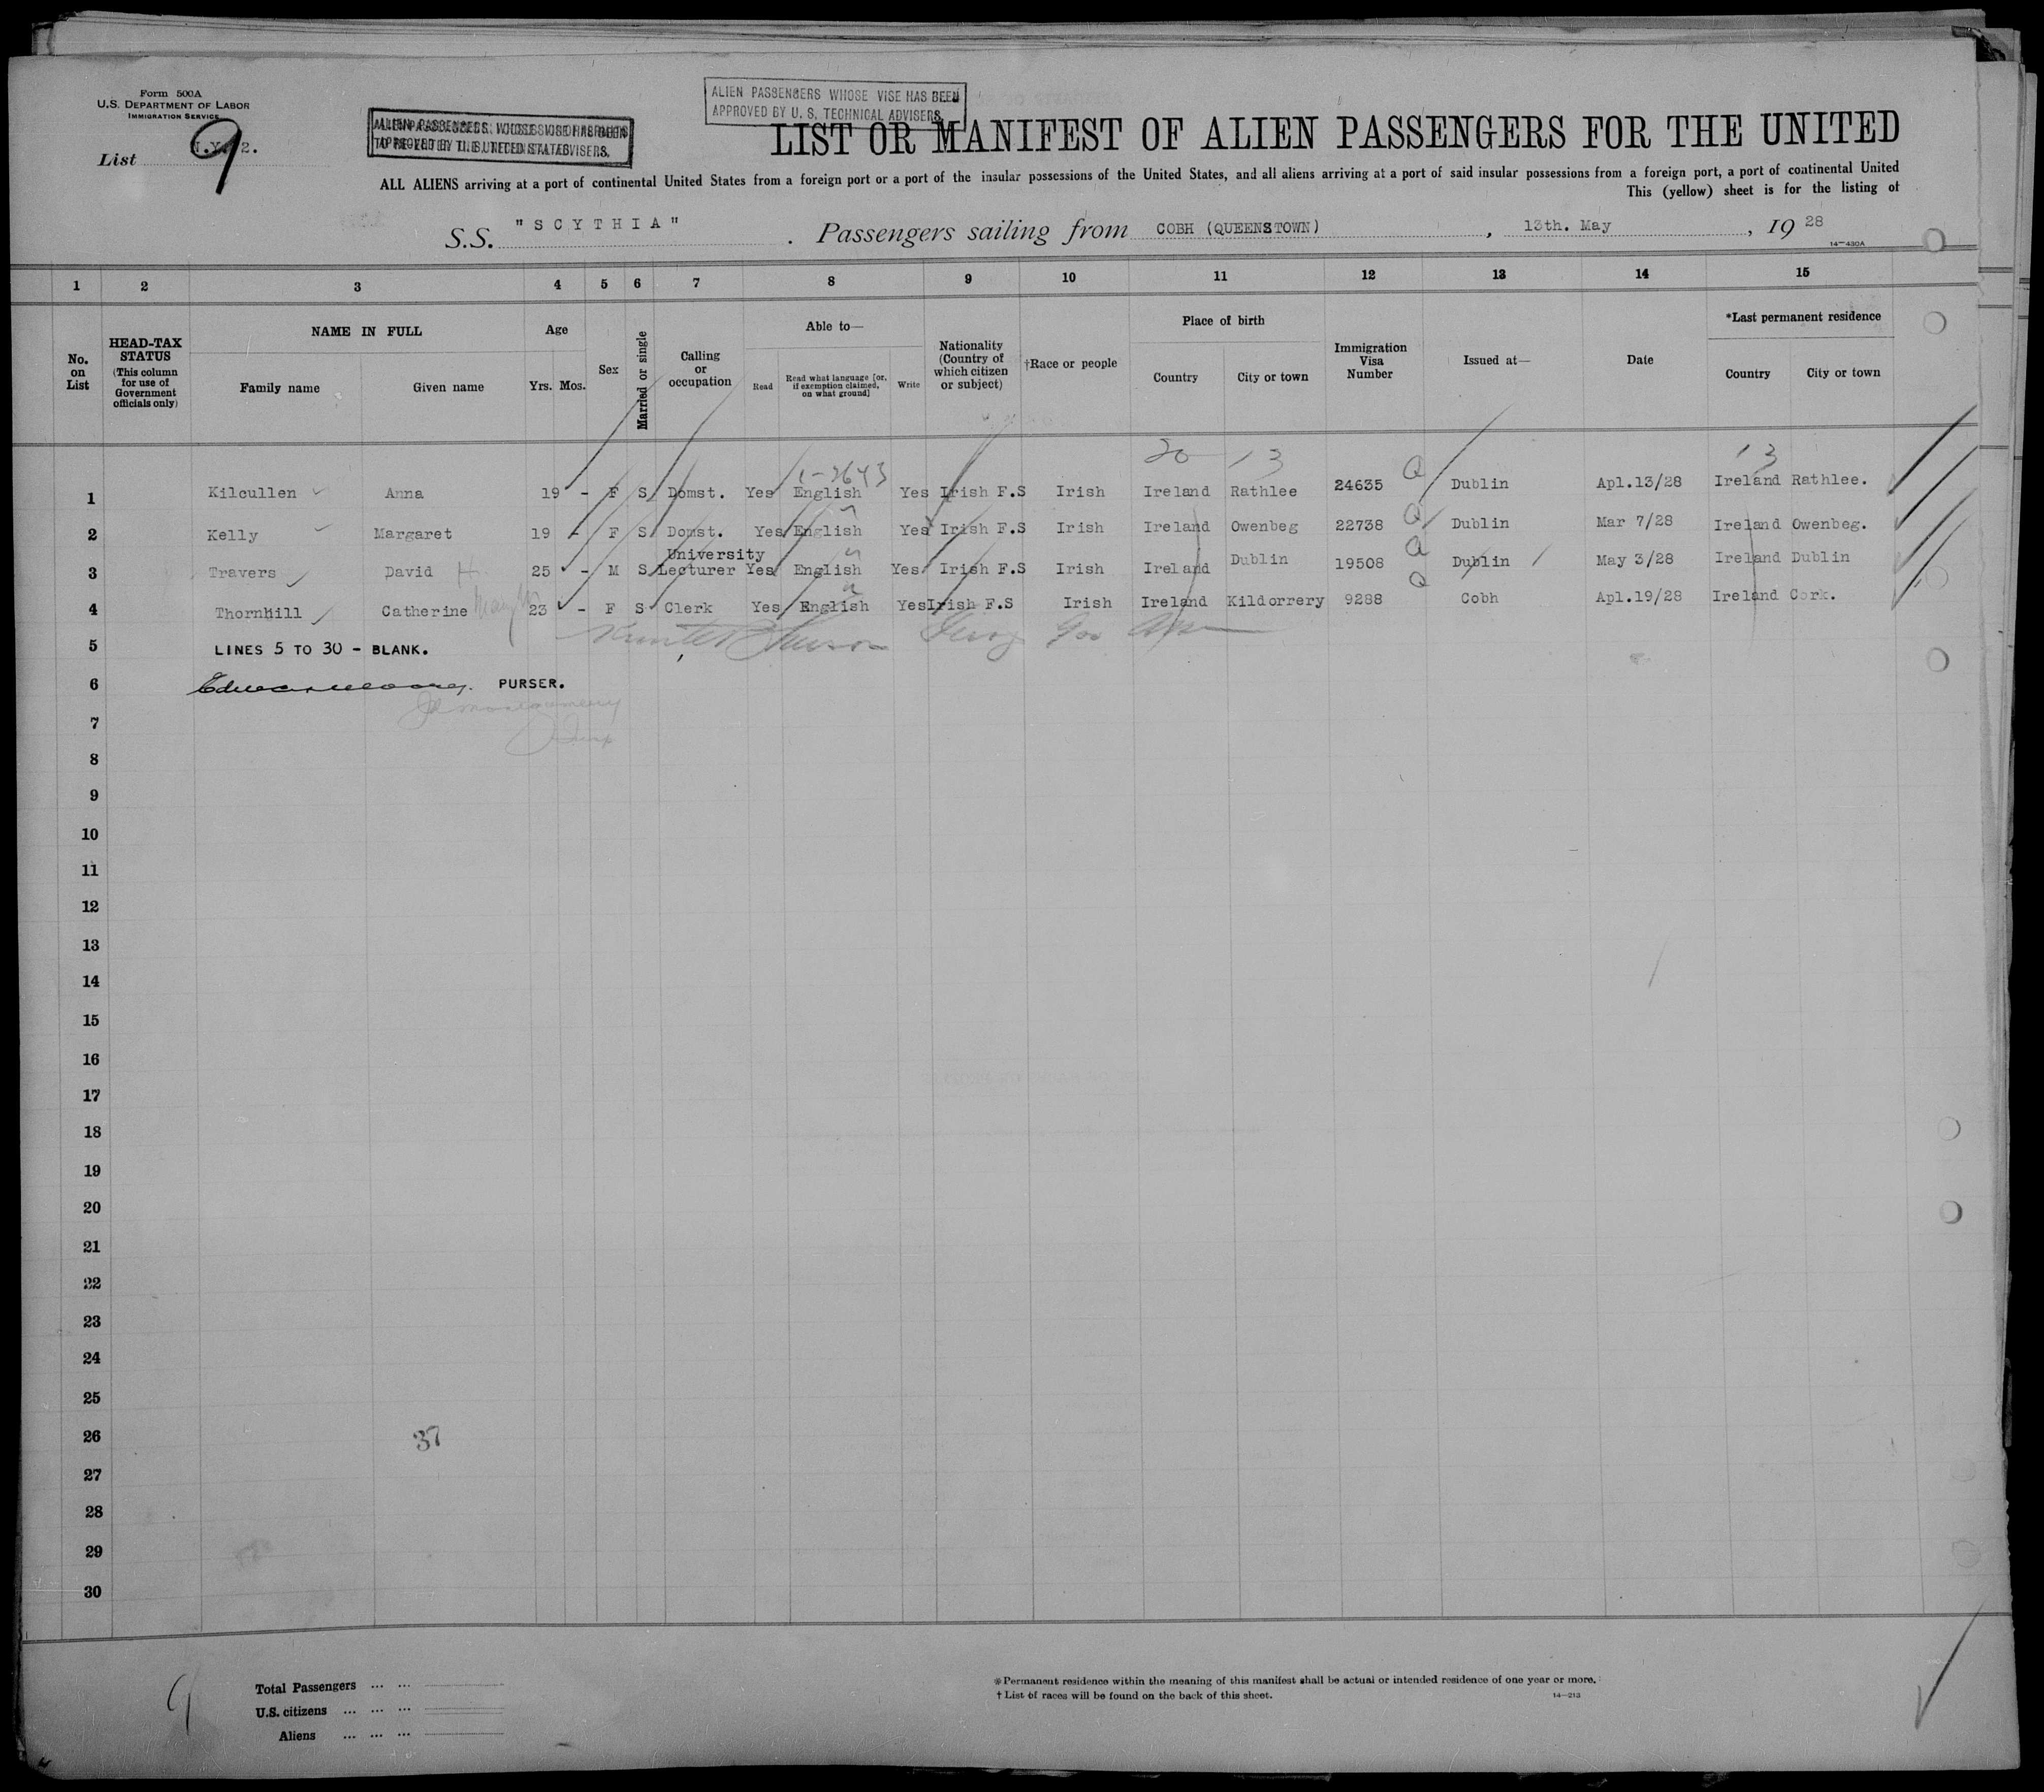 Form 500A
U.S. DEPARTMENT OF LABOR
IMMIGRATION SERVICE
List 9
ALIEN PASSENGERS WHOSE VISE HAS BEEN
APPROVED BY U. S. TECHNICAL ADVISERS.
LIST OR MANIFEST OF ALIEN PASSENGERS FOR THE UNITED
ALL ALIENS arriving at a port of continental United States from a foreign port or a port of the insular possessions of the United States, and all aliens arriving at a port of said insular possessions from a foreign port, a port of continental United
This (yellow) sheet is for the listing of
S.S. "SCYTHIA" . Passengers sailing from COBH (QUEENSTOWN) , 13th. May , 19 28
14—430A
1 2 3 4 5 6 7 8 9 10 11 12 13 14 15
No. on List
HEAD-TAX STATUS (This column for use of Government officials only)
NAME IN FULL
Family name Given name
Age
Yrs. Mos.
Sex
Married or single
Calling or occupation
Able to—
Read Read what language [or, if exemption claimed, on what ground] Write
Nationality (Country of which citizen or subject)
†Race or people
Place of birth
Country City or town
Immigration Visa Number
Issued at—
Date
*Last permanent residence
Country City or town
20 13 13
1 Kilcullen Anna 19 - F S Domst. Yes English Yes Irish F.S Irish Ireland Rathlee 24635 Q Dublin Apl.13/28 Ireland Rathlee.
2 Kelly Margaret 19 - F S Domst. Yes English Yes Irish F.S Irish Ireland Owenbeg 22738 Q Dublin Mar 7/28 Ireland Owenbeg.
3 Travers David H 25 - M S University Lecturer Yes English Yes Irish F.S Irish Ireland Dublin 19508 Q Dublin May 3/28 Ireland Dublin
4 Thornhill Catherine 23 - F S Clerk Yes English Yes Irish F.S Irish Ireland Kildorrery 9288 Q Cobh Apl.19/28 Ireland Cork.
5 LINES 5 TO 30 - BLANK.
6 PURSER.
7
8
9
10
11
12
13
14
15
16
17
18
19
20
21
22
23
24
25
26 37
27
28
29
30
9
Total Passengers ... ...
U.S. citizens ... ... ...
Aliens ... ... ...
*Permanent residence within the meaning of this manifest shall be actual or intended residence of one year or more.
† List of races will be found on the back of this sheet.
14—213